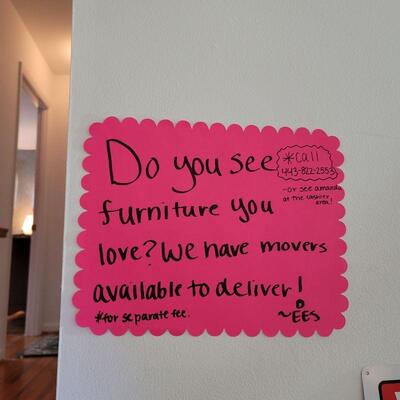 Do you see
*call
443-822-2553
-or see amanda
at the cashier
area!
furniture you
love? We have movers
available to deliver!
*for separate fee.
~EES